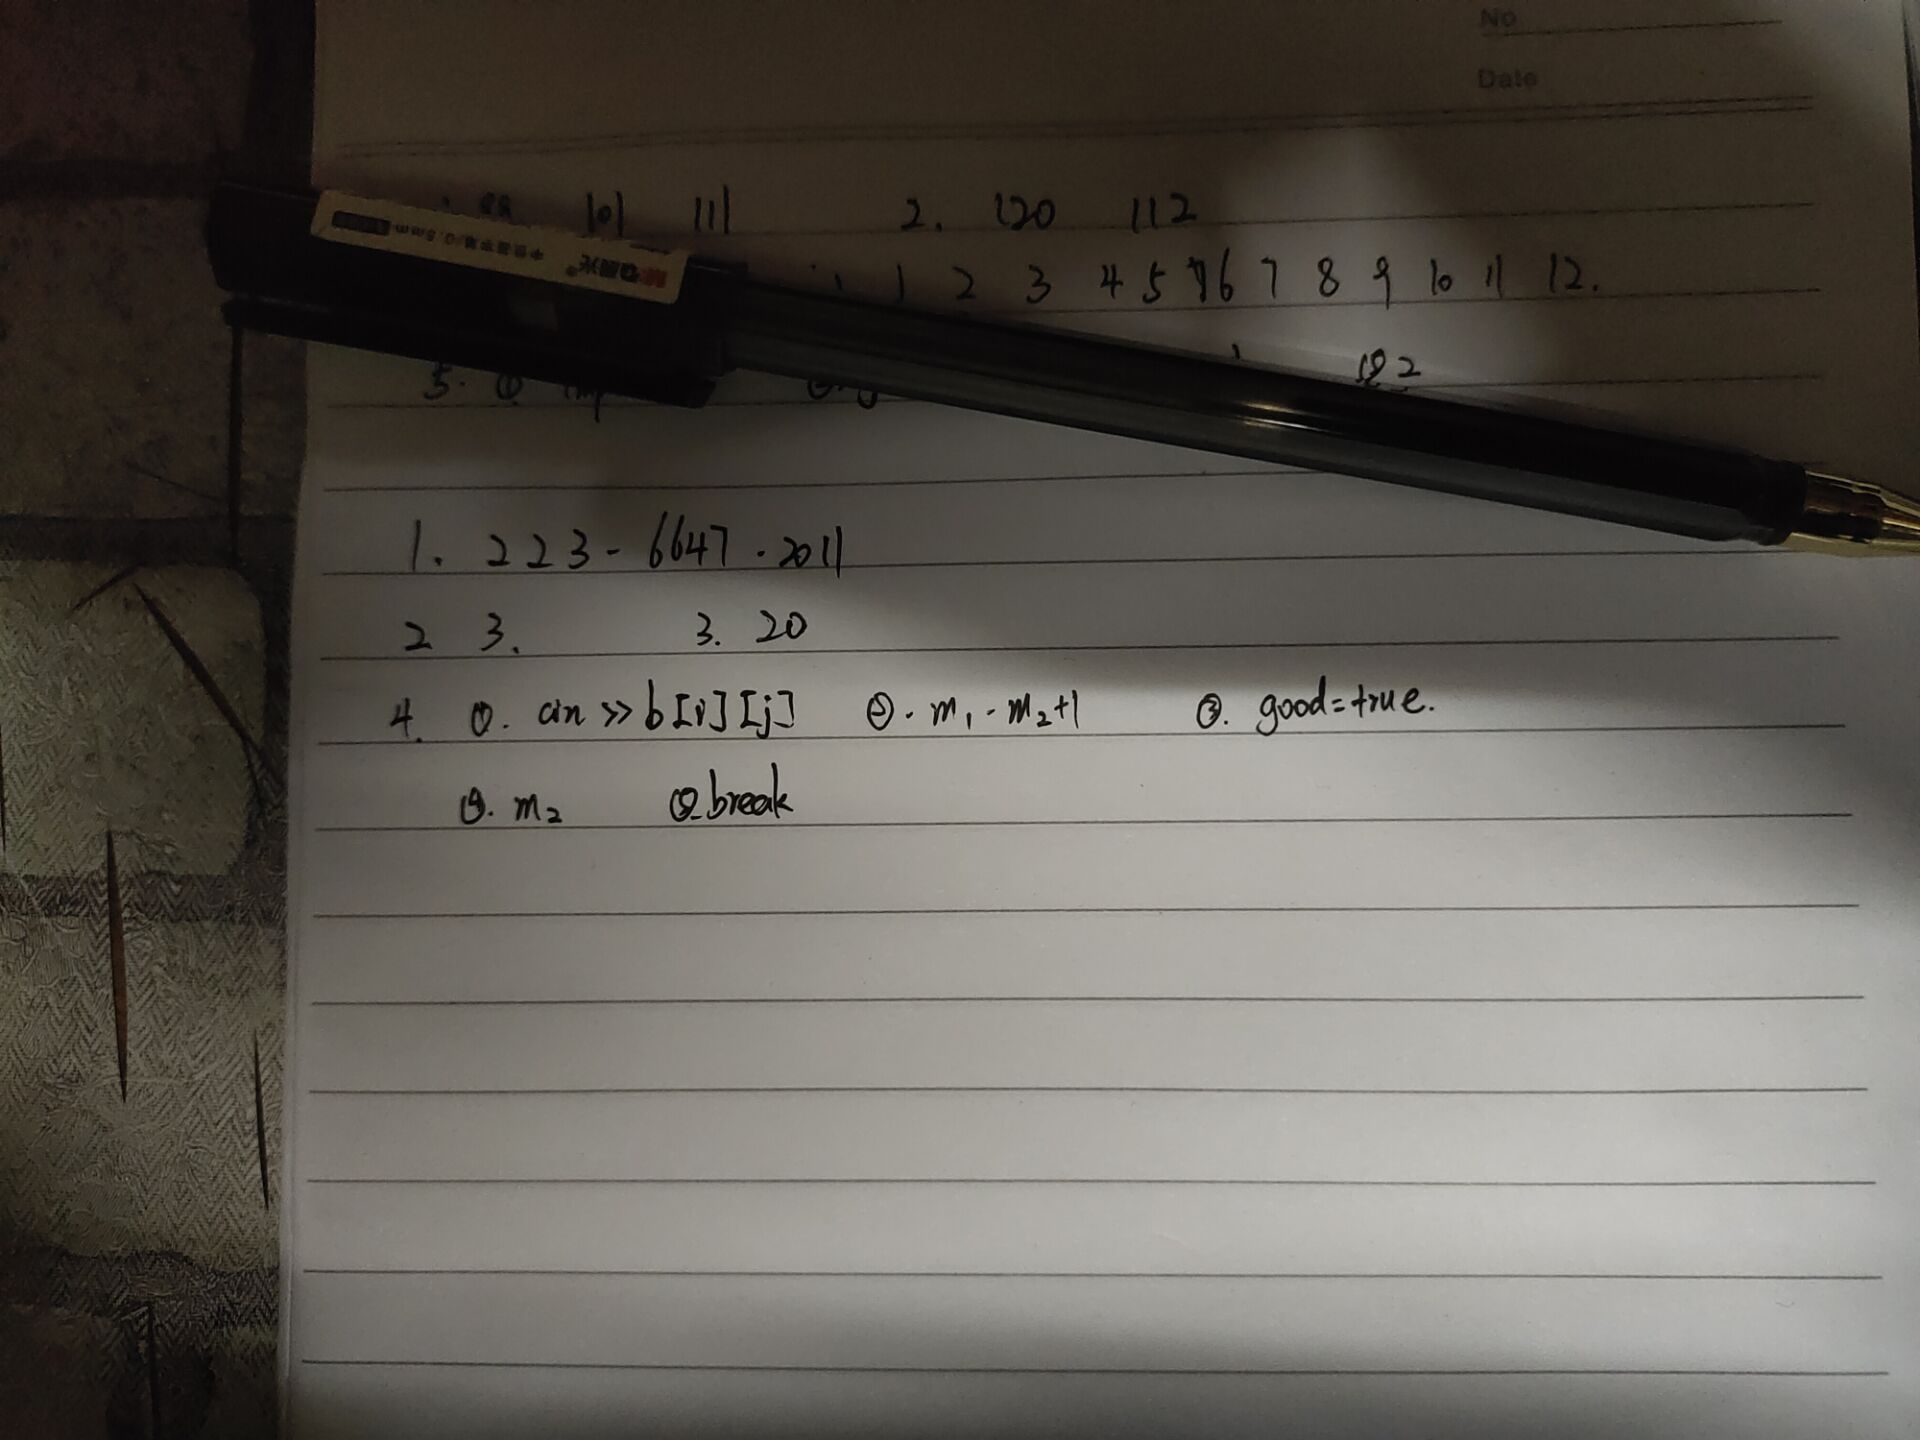 No
Date
101 111 2. 120 112
1 2 3 4 5 6 7 8 9 10 11 12.
5. ① ⑤ 2
1. 223-6647-2011
2 3. 3. 20
4. ①. cin >> b[i][j] ②. m₁-m₂+1 ③. good=true.
④. m₂ ⑤ break